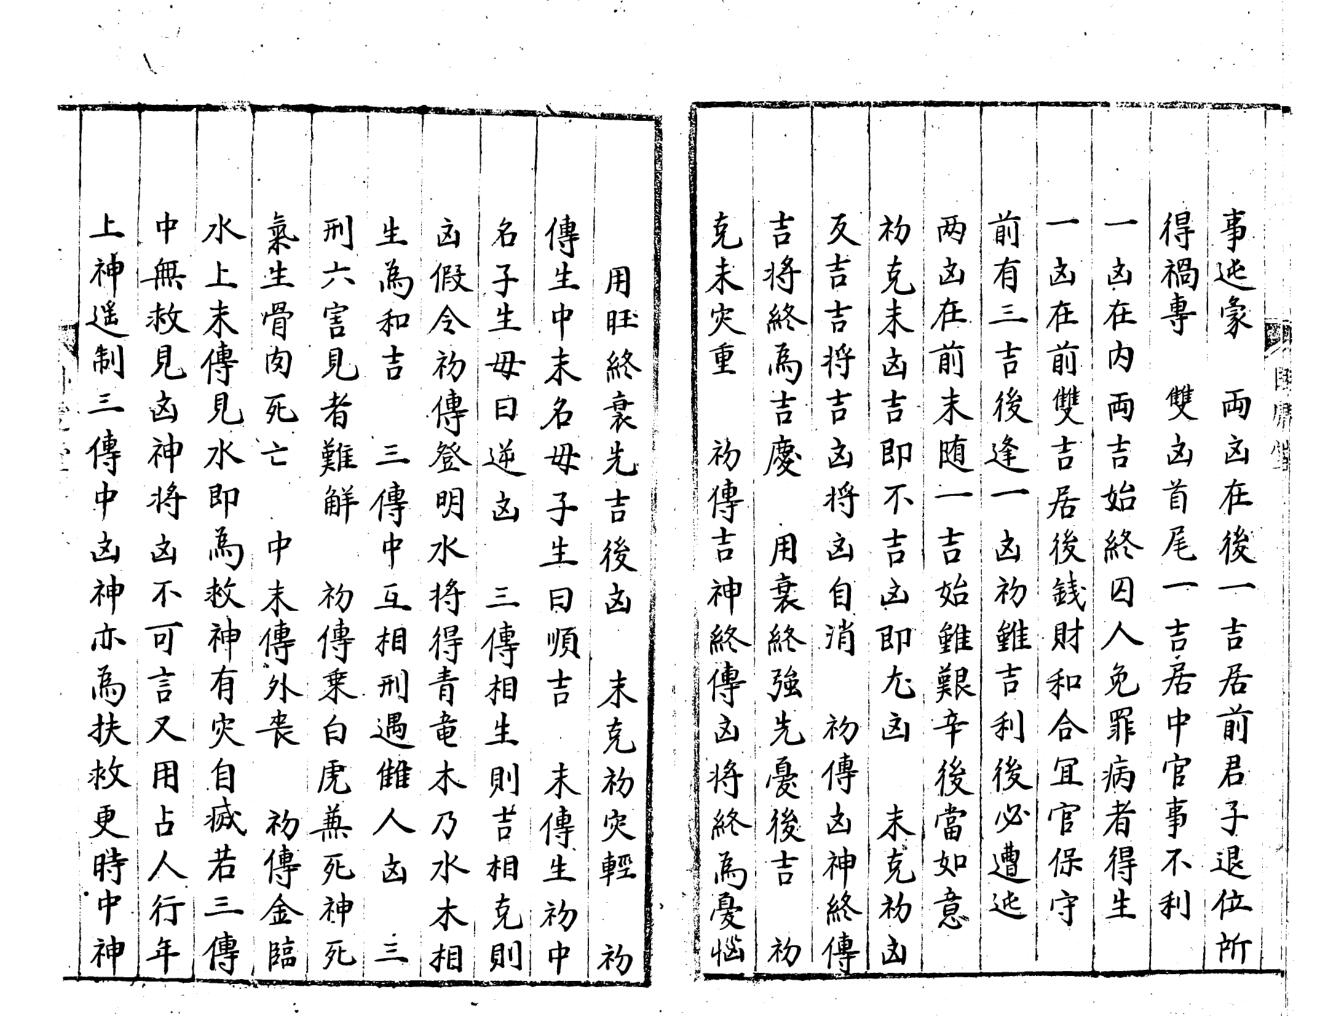 事迍蒙　両凶在後一吉居前君子退位所
得禍專　雙凶首尾一吉居中官事不利
一凶在内両吉始終囚人免罪病者得生
一凶在前雙吉居後錢財和合冝官保守
前有三吉後逢一凶初雖吉利後必遭迍
两凶在前末随一吉始雖艱辛後當如意
初克末凶吉即不吉凶即尤凶　末克初凶
反吉吉将吉凶将凶自消　初傳凶神終傳
吉将終爲吉慶　用衰終強先憂後吉　初
克末灾重　初傳吉神終傳凶将終爲憂惱
用旺終衰先吉後凶　末克初灾輕　初
傳生中末名母子生曰順吉　末傳生初中
名子生母曰逆凶　三傳相生則吉相克則
凶假令初傳登明水将得青竜木乃水木相
生爲和吉　三傳中互相刑遇雠人凶　三
刑六害見者難解　初傳乗白虎兼死神死
氣生骨肉死亡　中末傳外丧　初傳金臨
水上末傳見水即爲救神有灾自滅若三傳
中無救見凶神将凶不可言又用占人行年
上神遥制三傳中凶神亦爲扶救更時中神